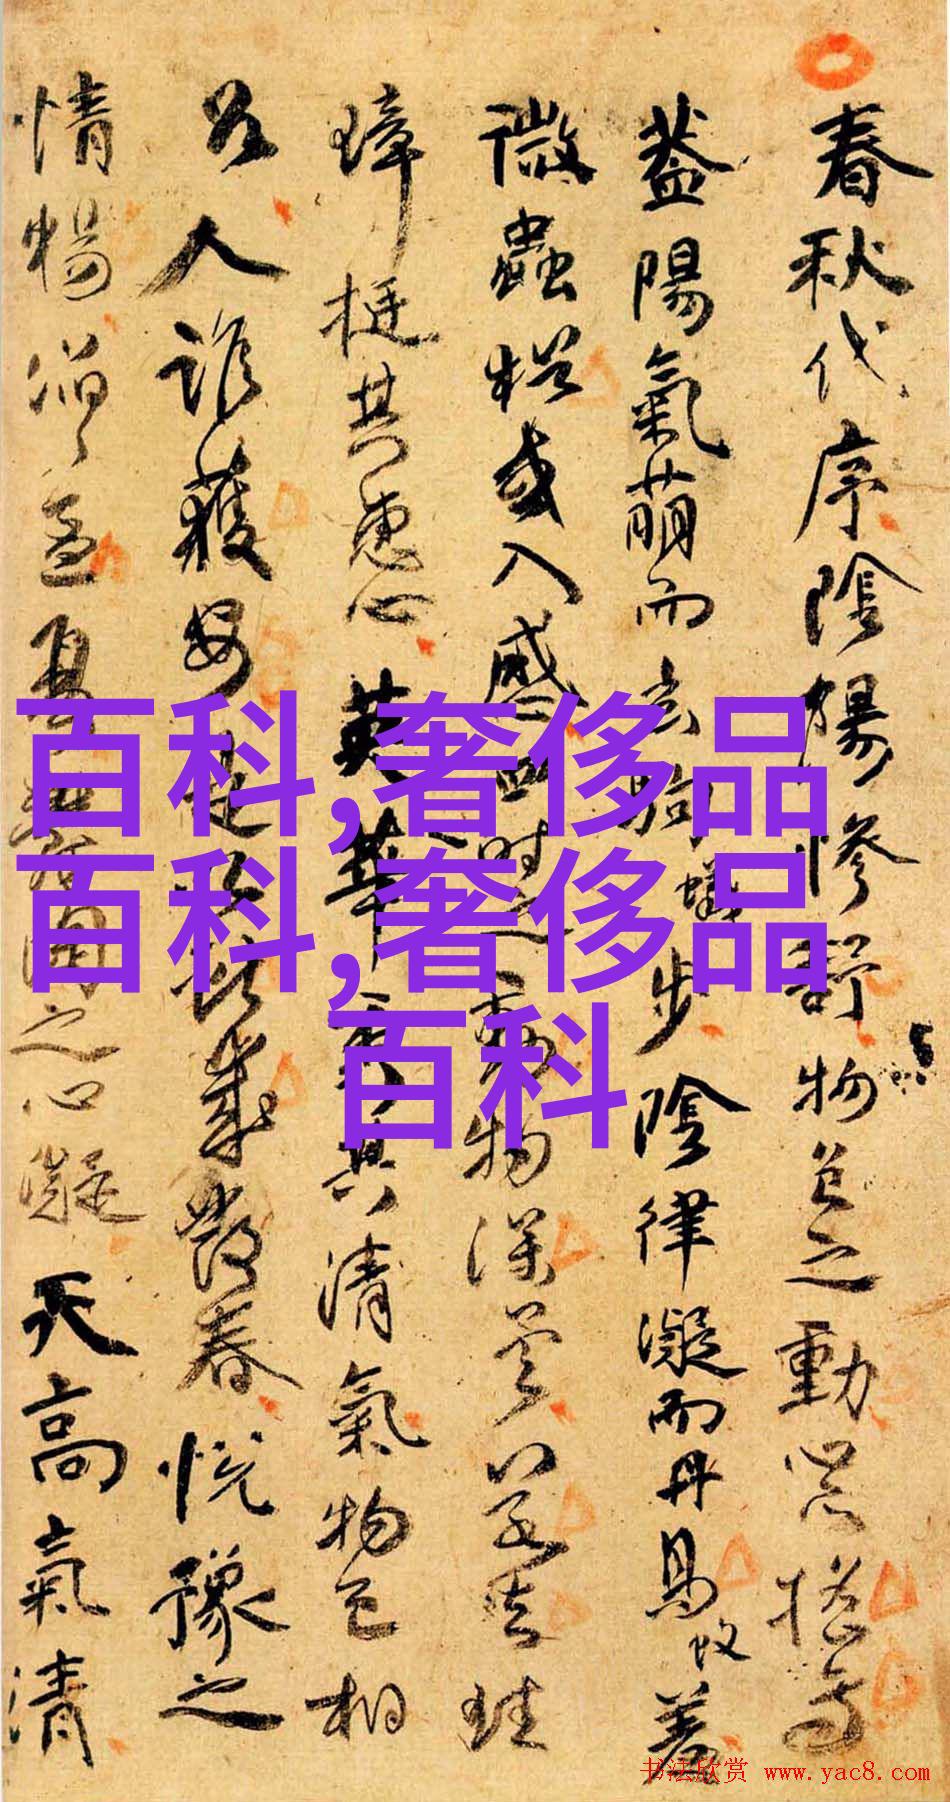 春秋代序陰陽慘舒物色之動心亦搖焉
蓋陽氣萌而玄駒蟻步陰律凝而丹鳥蚊羞
微蟲猶或入感四時之動物深矣若夫珪
璋挺其惠心英華秀其清氣物色相
召人誰獲安是以獻歲發春悅豫之
情暢滔々孟夏欝陶之心凝天高氣清
百科,奢侈品
百科,奢侈品
百科
书法欣赏 www.yac8.com